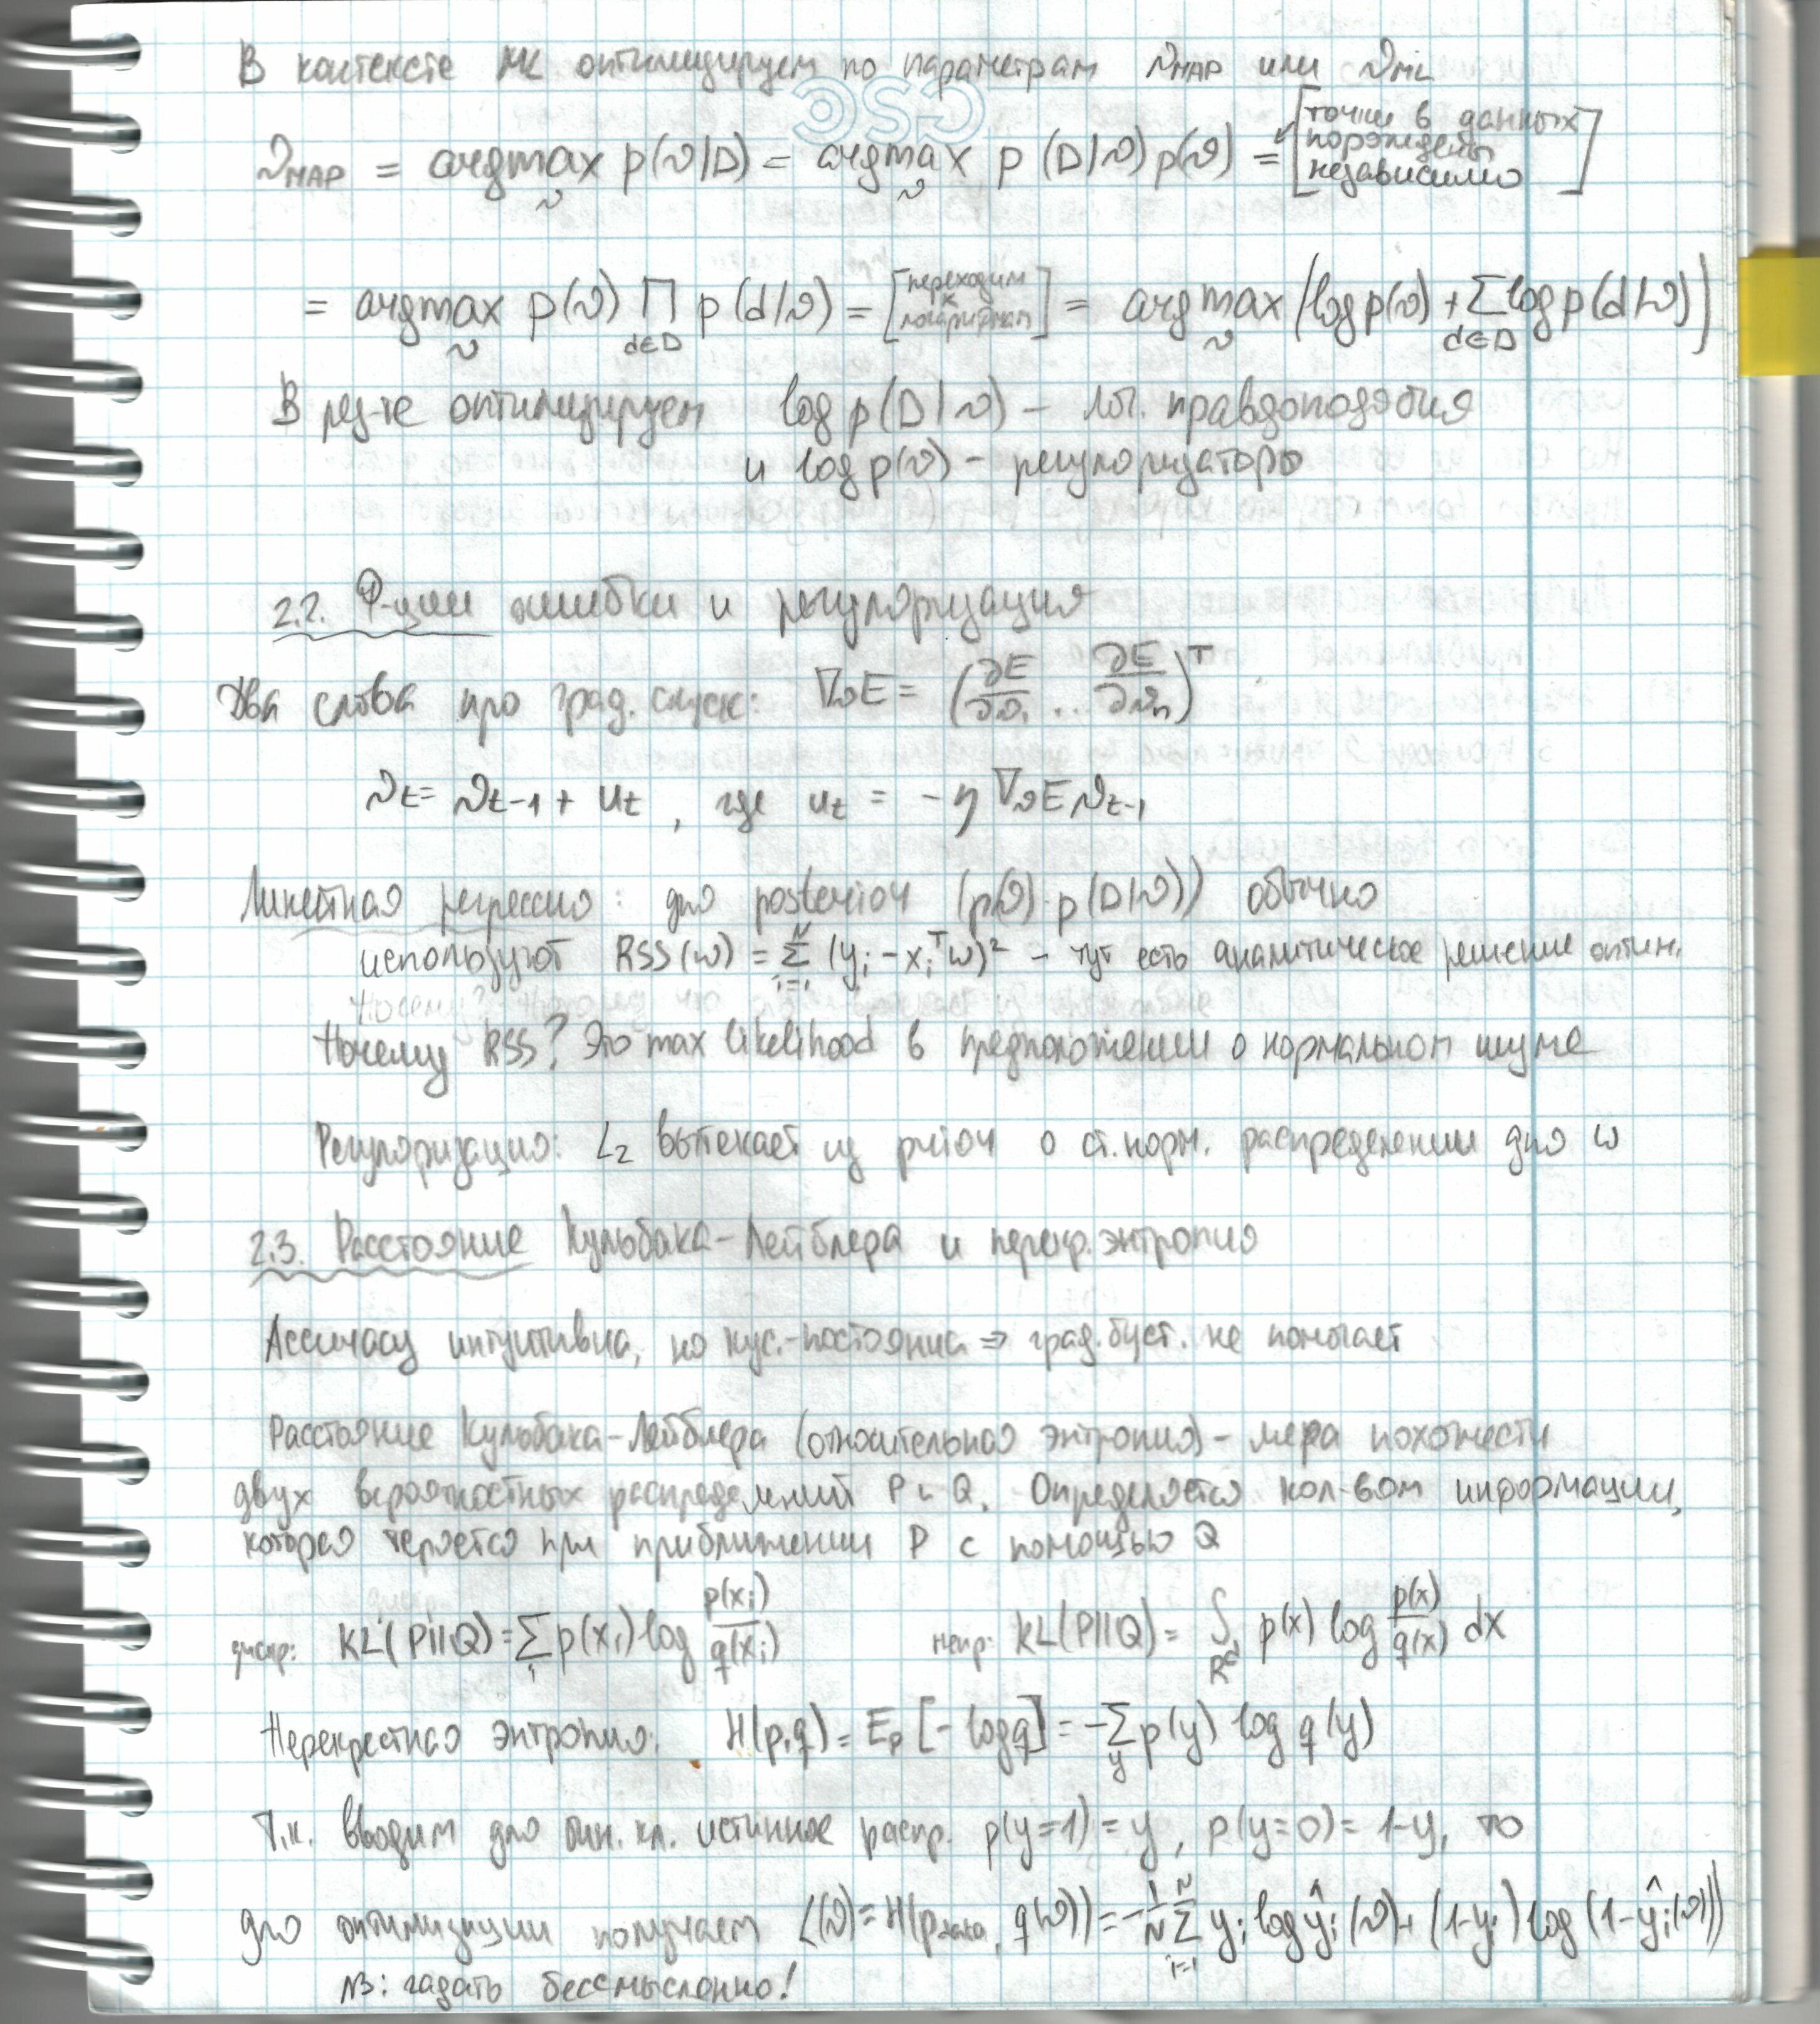 В контексте ML оптимизируем по параметрам ϑ_MAP или ϑ_ML
ϑ_MAP = argmax_ϑ p(ϑ|D) = argmax_ϑ p(D|ϑ)p(ϑ) = [точки в данных порождены независимо]
= argmax_ϑ p(ϑ) ∏_{d∈D} p(d|ϑ) = [переходим к логарифмам] = argmax_ϑ (log p(ϑ) + Σ_{d∈D} log p(d|ϑ))
В рез-те оптимизируем log p(D|ϑ) – лог. правдоподобия
и log p(ϑ) – регуляризаторы
2.2. Ф-ции ошибки и регуляризация
Два слова про град. спуск: ∇_ϑ E = (∂E/∂ϑ₁ ... ∂E/∂ϑₙ)^T
ϑ_t = ϑ_{t-1} + u_t, где u_t = -η ∇_ϑ E ϑ_{t-1}
Линейная регрессия: для posterior (p(ϑ)·p(D|ϑ)) обычно
используют RSS(w) = Σ_{i=1}^N (y_i - x_i^T w)² – тут есть аналитическое решение оптим.
Почему RSS? Это max likelihood в предположении о нормальном шуме
Регуляризация: L₂ вытекает из prior о ст. норм. распределении для w
2.3. Расстояние Кульбака-Лейблера и перекр. энтропия
Accuracy интуитивна, но кус.-постоянна ⇒ град. буст. не помогает
Расстояние Кульбака-Лейблера (относительная энтропия) – мера похожести
двух вероятностных распределений P и Q. Определяется кол-вом информации,
которая теряется при приближении P с помощью Q
дискр: KL(P||Q) = Σ_i p(x_i) log p(x_i)/q(x_i) непр: KL(P||Q) = ∫_{R^d} p(x) log p(x)/q(x) dx
Перекрестная энтропия: H(p,q) = E_p[- log q] = -Σ_y p(y) log q(y)
Т.к. вводим для бин. кл. истинное распр. p(y=1) = y, p(y=0) = 1-y, то
для оптимизации получаем L(ϑ) = H(p_data, q(ϑ)) = -1/N Σ_{i=1}^N y_i log ŷ_i(ϑ) + (1-y_i) log (1-ŷ_i(ϑ))
NB: гадать бессмысленно!